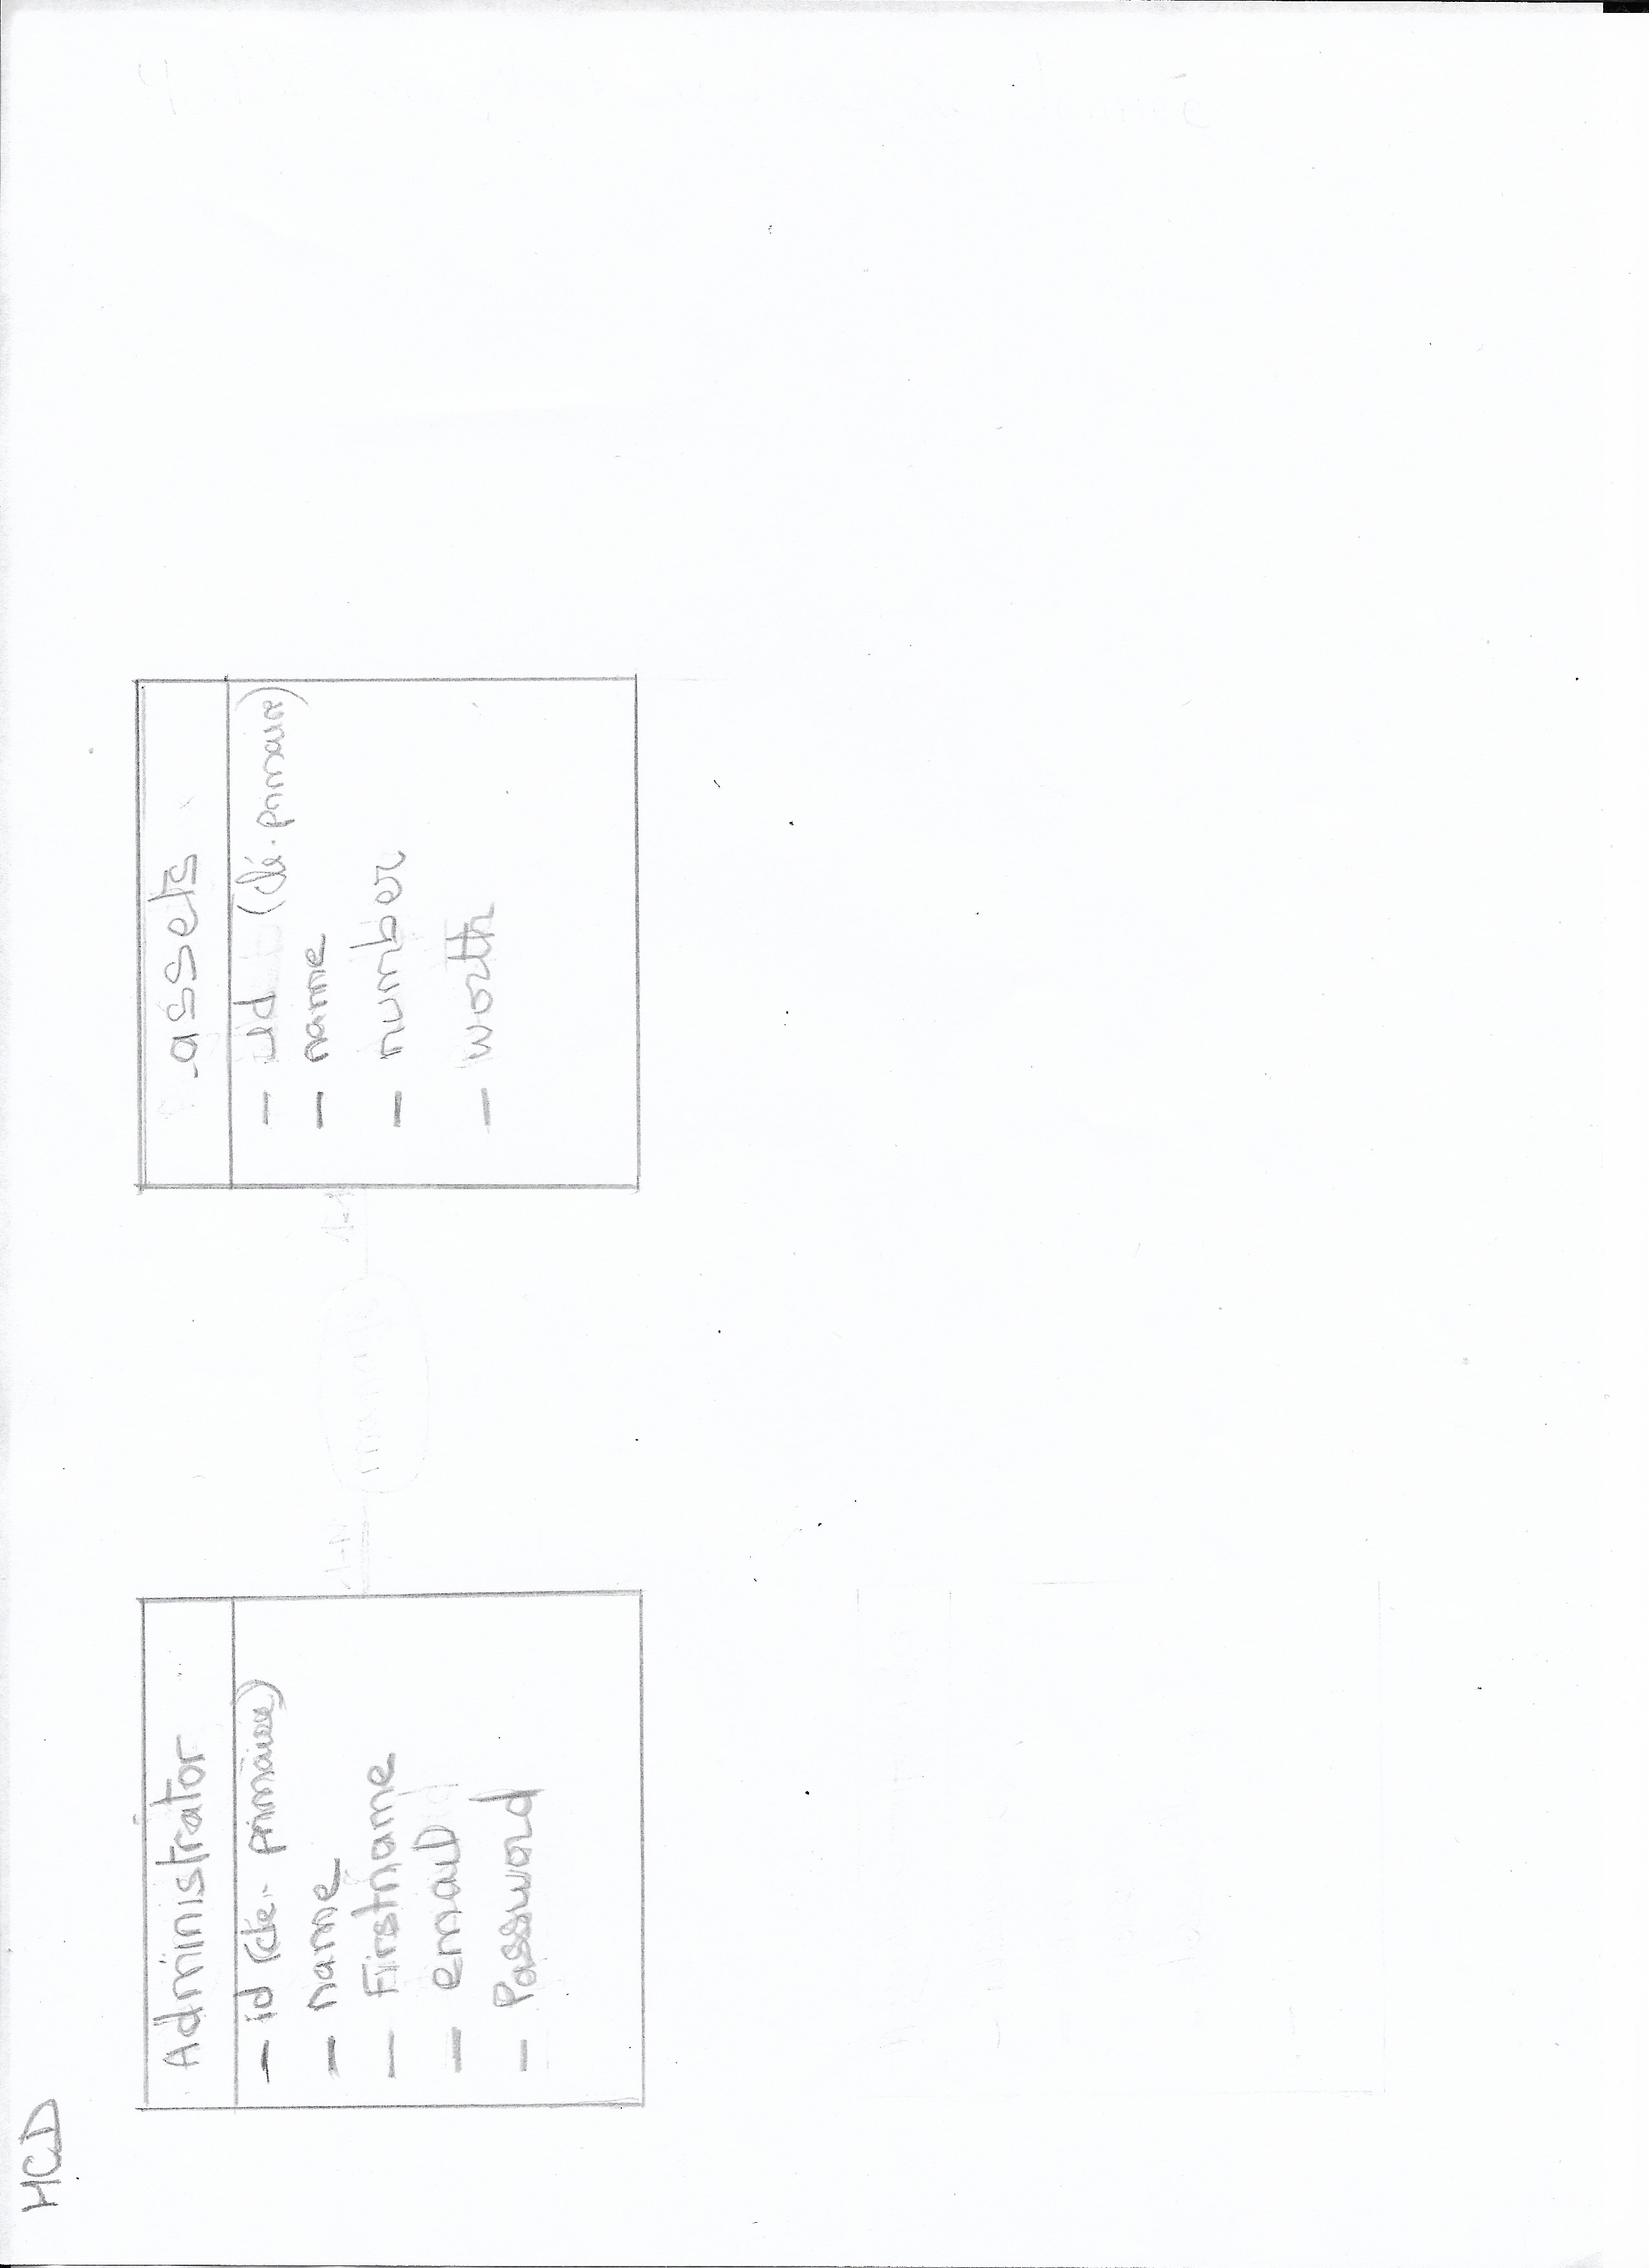 MCD
Administrator
- id (clé - primaire)
- name
- Firstname
- email
- Password
assets
- id (clé - primaire)
- name
- number
- worth